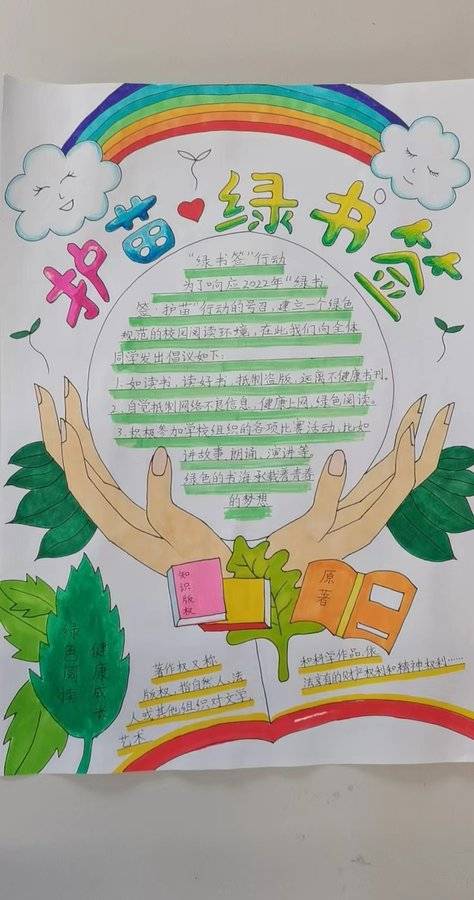 护苗 绿书签
“绿书签”行动
为了响应2022年“绿书
签·护苗”行动的号召,建立一个绿色
规范的校园阅读环境,在此我们向全体
同学发出倡议如下:
1.如读书,读好书,抵制盗版,远离不健康书刊。
2.自觉抵制网络不良信息,健康上网,绿色阅读。
3.积极参加学校组织的各项比赛活动,比如
讲故事,朗诵,演讲等,
绿色的书海承载着青春
的梦想
知识版权
原著
绿色阅读
健康成长
著作权又称
版权,指自然人,法
人或其他组织对文学
艺术
和科学作品,依
法享有的财产权利和精神权利……